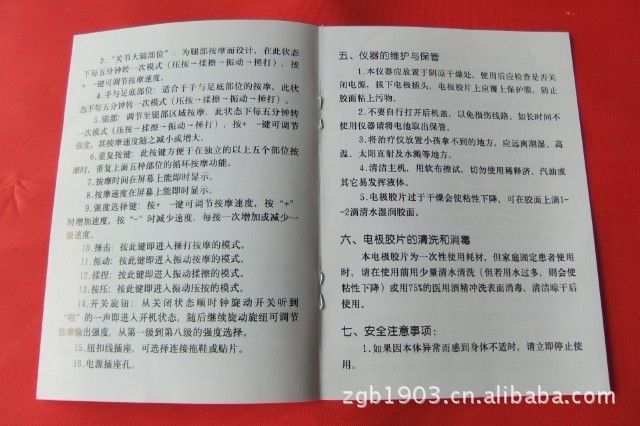 3."关节大腿部位": 为腿部按摩而设计, 在此状态
下每五分钟转一次模式(压按→揉擦→振动→捶打), 按
+ -键可调节按摩速度。
4.手与足底部位: 适合于手与足底部位的按摩, 此状
态下每五分钟转一次模式(压按→揉擦→振动→捶打)。
5.腿部: 调节至腿部区域按摩, 此状态下每五分钟转
一次模式(压按→揉擦→振动→捶打), 按+ -键可调节
强度, 其按摩速度随之减小或增大。
6.重复按键: 此按键方便于在独立的以上五个部位按
摩时, 重复上面五种部位的循环按摩功能。
7.按摩时间在屏幕上能即时显示。
8.按摩速度在屏幕上能即时显示。
9.强度选择键: 按+ -键可调节按摩速度, 按"+"
时增加速度, 按"-"时减少速度, 每按一次增加或减少一
级速度。
10.捶击: 按此键即进入捶打按摩的模式。
11.振动: 按此键即进入振动按摩的模式。
12.揉捏: 按此键即进入振动揉擦的模式。
13.按压: 按此键即进入振动压按的模式。
14.开关旋钮: 从关闭状态顺时钟旋动开关听到
的一声即进入开机状态, 随后继续旋动旋纽可调节
按摩输出强度, 从第一级到第八级的强度选择。
15.纽扣线插座, 可选择连接拖鞋或贴片。
16.电源插座孔。
五、仪器的维护与保管
1.本仪器应放置于阴凉干燥处, 使用后应检查是否关
闭电源, 拔下电极插头, 电极胶片上应覆上保护膜, 防止
胶面粘上污物。
2.不要自行打开后机盖, 以免损伤线路, 如长时间不
使用仪器请将电池取出保管。
3.将治疗仪放置小孩拿不到的地方, 应远离潮湿、高
温、太阳直射及水溅等地方。
4.清洁主机, 用软布擦试, 切勿使用稀释济、汽油或
其它易发挥液体。
5.电极胶片过于干燥会使粘性下降, 可在胶面上滴1-
-2滴清水湿润胶面。
六、电极胶片的清洗和消毒
本电极胶片为一次性使用耗材, 但家庭固定患者使用
时, 请在使用前用少量清水清洗(但若用水过多, 则会使
粘性下降)或用75%的医用酒精冲洗表面消毒, 清洁晾干后
使用。
七、安全注意事项:
1.如果因本体异常而感到身体不适时, 请立即停止使
用。
zgb1903.cn.alibaba.com